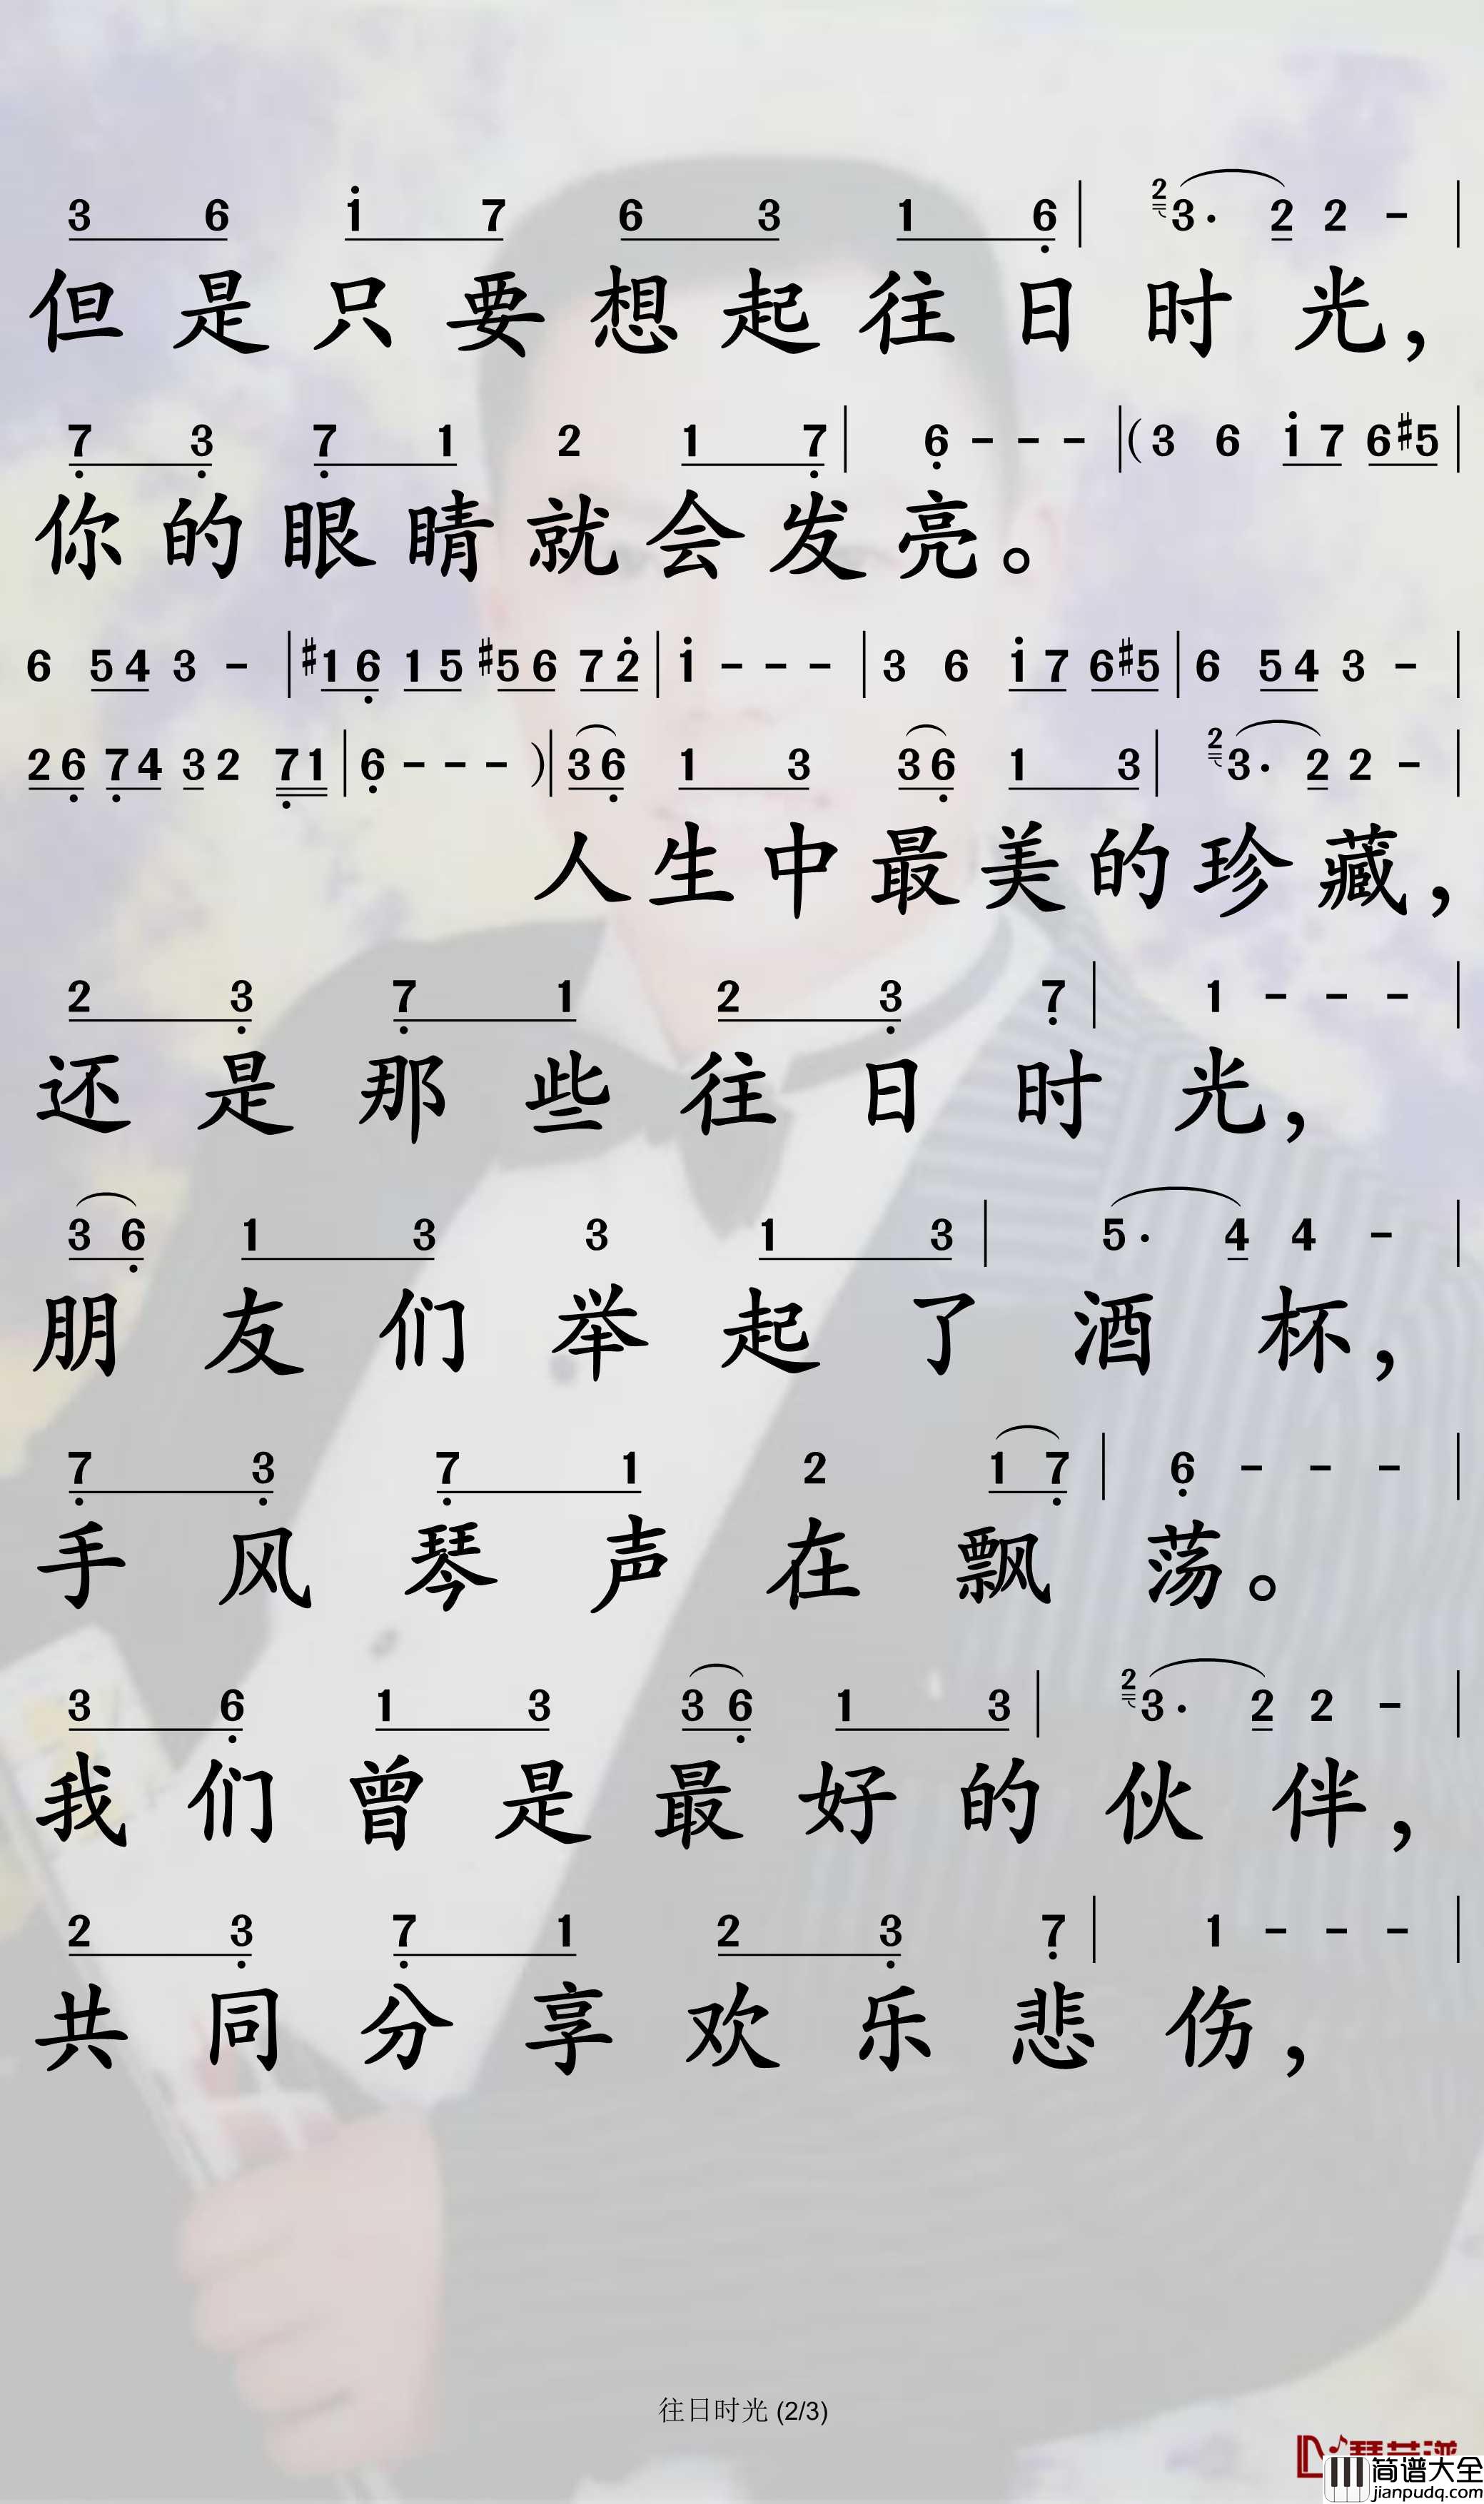 3 6 i 7 6 3 1 6 | 2 3· 2 2 - |
但是只要想起往日时光，
7 3 7 1 2 1 7 | 6 - - - | (3 6 i 7 6 #5 |
你的眼睛就会发亮。
6 5 4 3 - | #1 6 1 5 #5 6 7 2 | i - - - | 3 6 i 7 6 #5 | 6 5 4 3 - |
2 6 7 4 3 2 7 1 | 6 - - - )| 3 6 1 3 3 6 1 3 | 2 3· 2 2 - |
人生中最美的珍藏，
2 3 7 1 2 3 7 | 1 - - - |
还是那些往日时光，
3 6 1 3 3 1 3 | 5· 4 4 - |
朋友们举起了酒杯，
7 3 7 1 2 1 7 | 6 - - - |
手风琴声在飘荡。
3 6 1 3 3 6 1 3 | 2 3· 2 2 - |
我们曾是最好的伙伴，
2 3 7 1 2 3 7 | 1 - - - |
共同分享欢乐悲伤，
往日时光 (2/3)
简谱大全
jianpudq.com